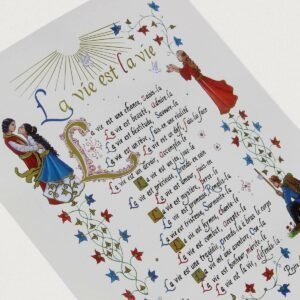 La vie est la vie
La vie est une chance, saisis-la
La vie est beauté, admire-la
La vie est béatitude, savoure-la
La vie est un rêve, fais-en une réalité
La vie est un défi, fais-lui face
La vie est un devoir, accomplis-le
La vie est un jeu, joue-le
La vie est précieuse,
La vie est une richesse, conserve-la
La vie est
La vie est mystère, perce-le
La vie est promesse, remplis-la
La vie est tristesse, surmonte-la
La vie est un hymne, chante-le
La vie est un combat, accepte-le
La vie est une tragédie, prends-la à bras le corps
La vie est une aventure, ose-la
La vie est bonheur, mérite-le
La vie est la vie, défends-la